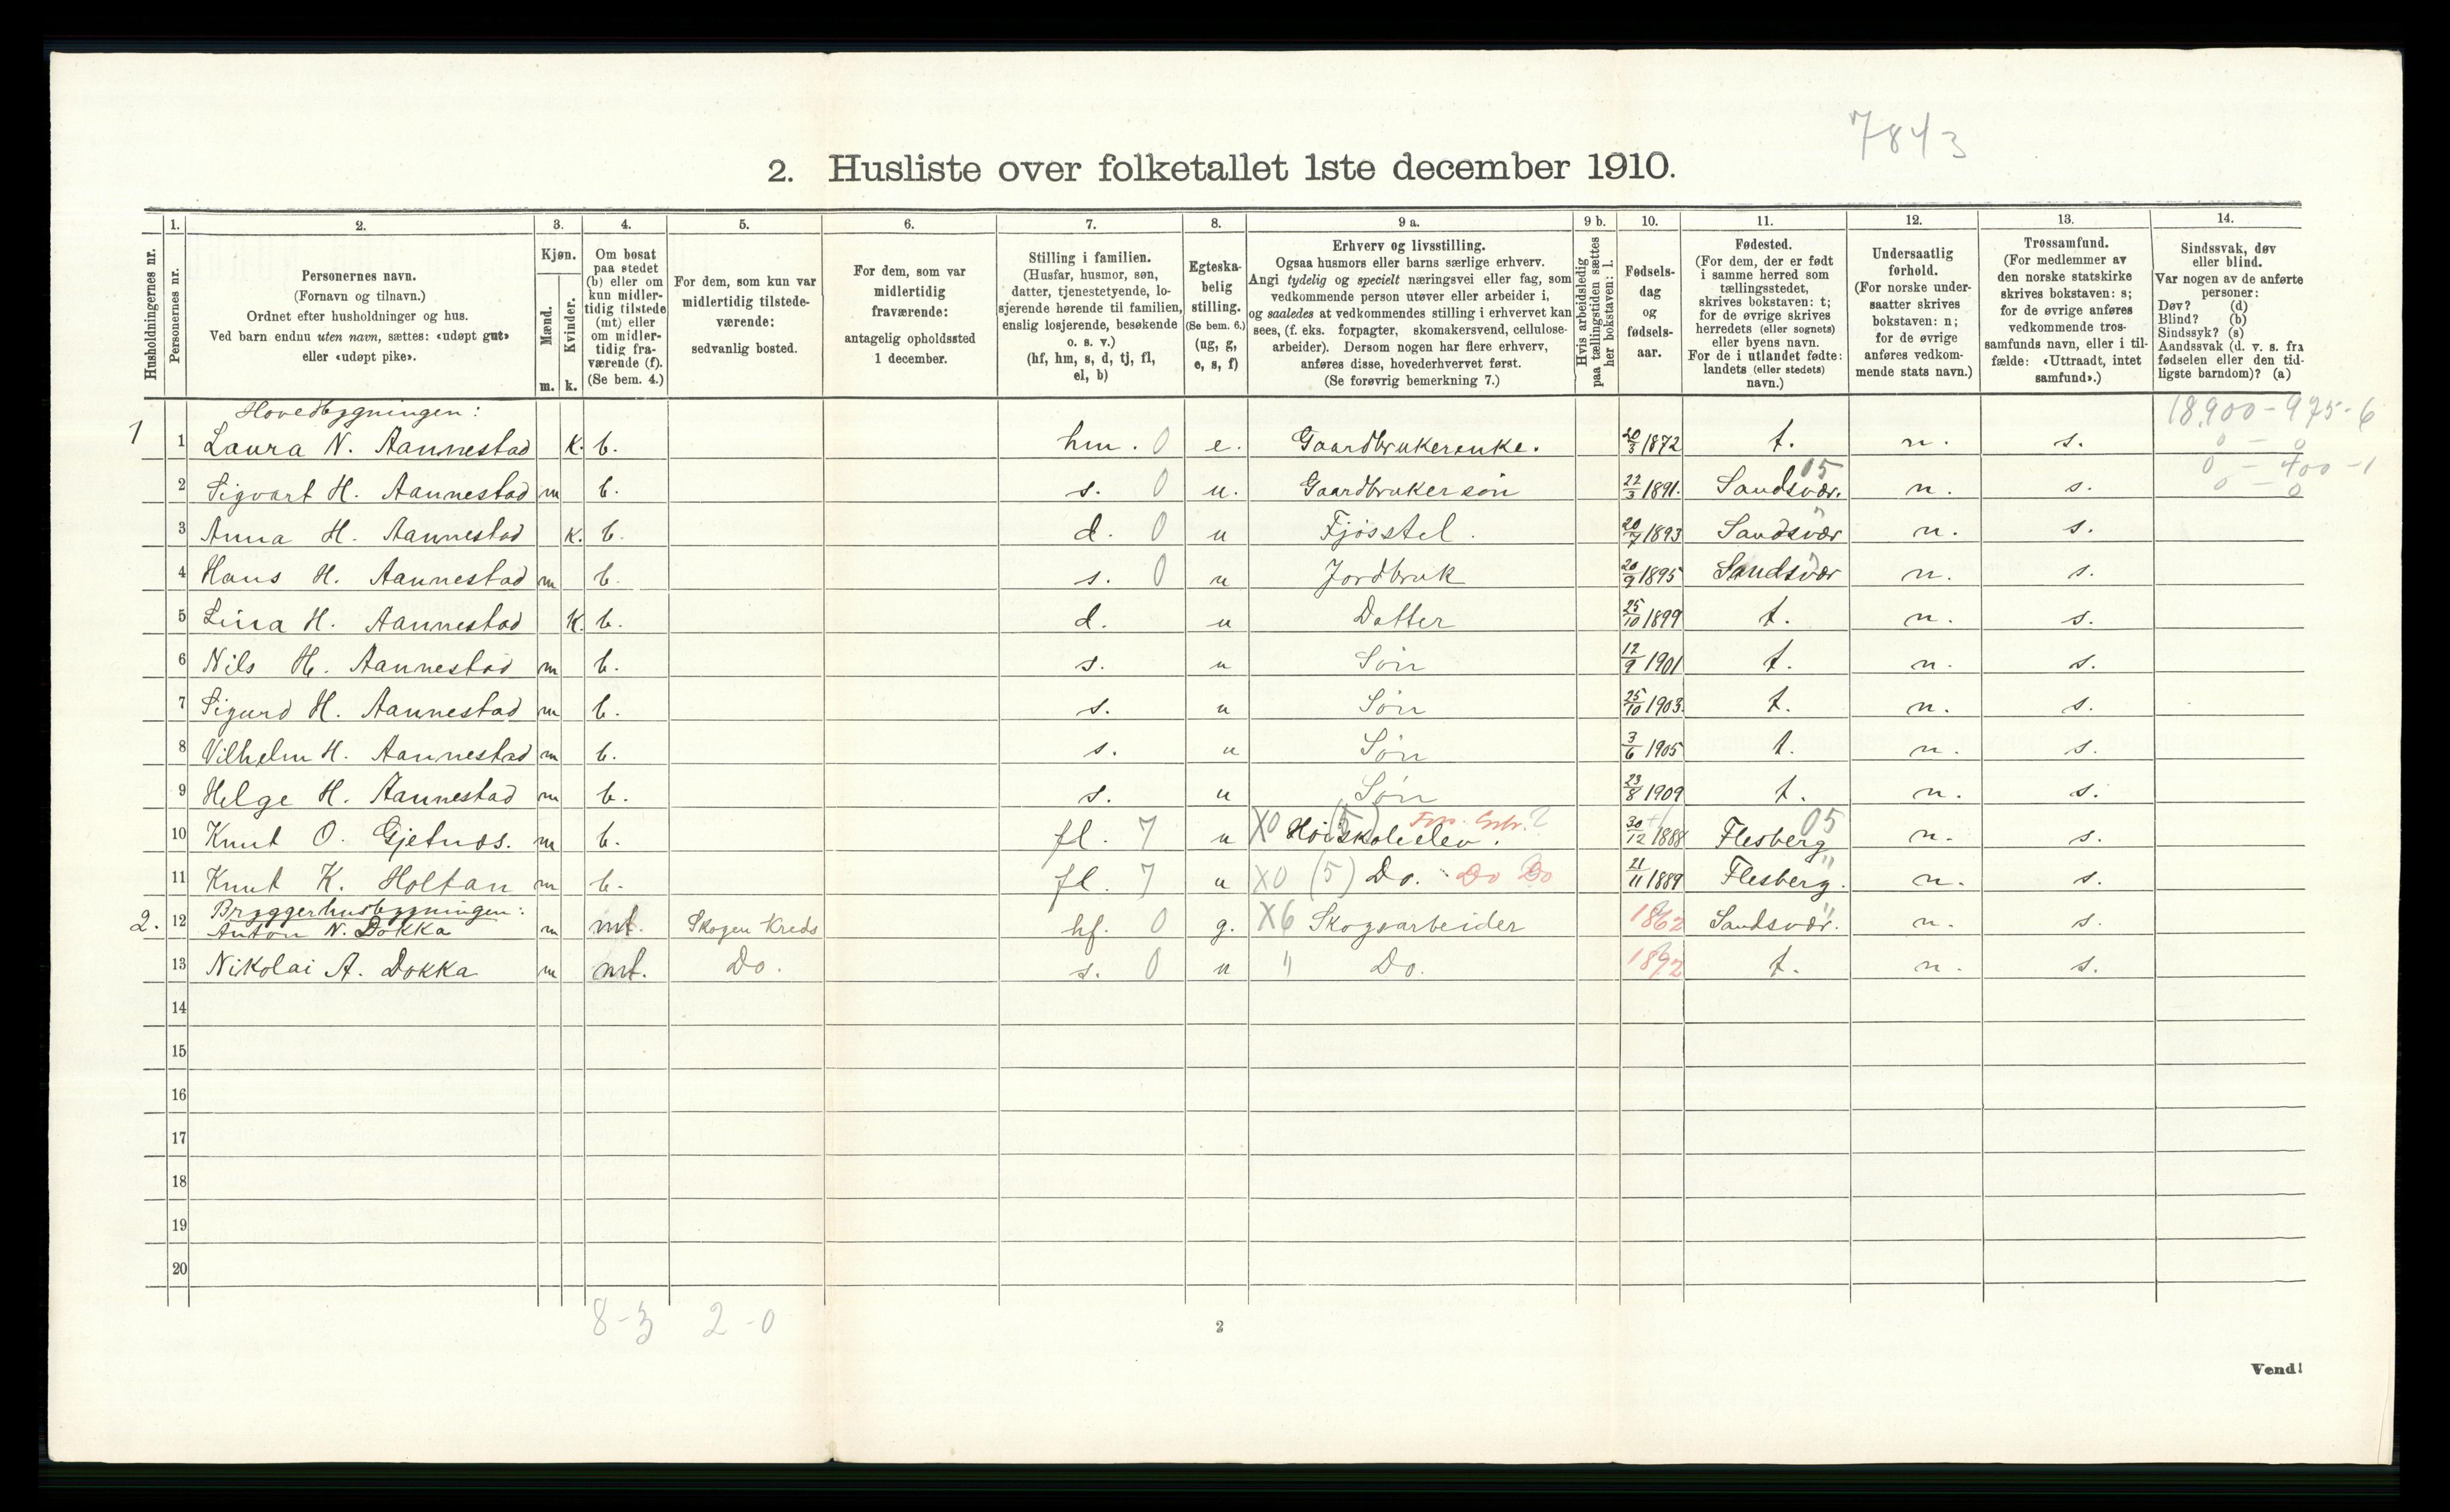 7843
2. Husliste over folketallet 1ste december 1910.
Husholdningernes nr.
1.
Personernes nr.
2.
Personernes navn.
(Fornavn og tilnavn.)
Ordnet efter husholdninger og hus.
Ved barn endnu uten navn, sættes: «udøpt gut»
eller «udøpt pike».
3.
Kjøn.
Mænd.
Kvinder.
m. k.
4.
Om bosat
paa stedet
(b) eller om
kun midler-
tidig tilstede
(mt) eller
om midler-
tidig fra-
værende (f).
(Se bem. 4.)
5.
For dem, som kun var
midlertidig tilstede-
værende:
sedvanlig bosted.
6.
For dem, som var
midlertidig
fraværende:
antagelig opholdssted
1 december.
7.
Stilling i familien.
(Husfar, husmor, søn,
datter, tjenestetyende, lo-
sjerende hørende til familien,
enslig losjerende, besøkende
o. s. v.)
(hf, hm, s, d, tj, fl,
el, b)
8.
Egteska-
belig
stilling.
(Se bem. 6.)
(ug, g,
e, s, f)
9 a.
Erhverv og livsstilling.
Ogsaa husmors eller barns særlige erhverv.
Angi tydelig og specielt næringsvei eller fag, som
vedkommende person utøver eller arbeider i,
og saaledes at vedkommendes stilling i erhvervet kan
sees, (f. eks. forpagter, skomakersvend, cellulose-
arbeider). Dersom nogen har flere erhverv,
anføres disse, hovederhvervet først.
(Se forøvrig bemerkning 7.)
9 b.
Hvis arbeidsledig
paa tællingstiden sættes
her bokstaven: l.
10.
Fødsels-
dag
og
fødsels-
aar.
11.
Fødested.
(For dem, der er født
i samme herred som
tællingsstedet,
skrives bokstaven: t;
for de øvrige skrives
herredets (eller sognets)
eller byens navn.
For de i utlandet fødte:
landets (eller stedets)
navn.)
12.
Undersaatlig
forhold.
(For norske under-
saatter skrives
bokstaven: n;
for de øvrige
anføres vedkom-
mende stats navn.)
13.
Trossamfund.
(For medlemmer av
den norske statskirke
skrives bokstaven: s;
for de øvrige anføres
vedkommende tros-
samfunds navn, eller i til-
fælde: «Uttraadt, intet
samfund».)
14.
Sindssvak, døv
eller blind.
Var nogen av de anførte
personer:
Døv? (d)
Blind? (b)
Sindssyk? (s)
Aandssvak (d. v. s. fra
fødselen eller den tid-
ligste barndom)? (a)
Hovedbygningen: 18.900 - 975 - 6
1 1 Laura N. Aannestad K. b. hm. 0 e. Gaardbrukerenke. 20/3 1872 t. n. s. 0 - 0
05 0 - 400 - 1
2 Sigvart H. Aannestad m b. s. 0 u. Gaardbruker søn 22/3 1891. Sandsvær. n. s. 0 - 0
3 Anna H. Aannestad K. b. d. 0 u Fjøsstel. 20/7 1893 Sandsvær " n. s.
4 Hans H. Aannestad m b. s. 0 u Jordbruk 20/9 1895 Sandsvær " n. s.
5 Lina H. Aannestad K. b. d. u Datter 25/10 1899 t. n. s.
6 Nils H. Aannestad m b. s. u Søn 12/9 1901 t. n. s.
7 Sigurd H. Aannestad m b. s. u Søn 25/10 1903. t. n. s.
8 Vilhelm H. Aannestad m b. s. u Søn 3/6 1905 t. n. s.
9 Helge H. Aannestad m b. s. u Søn 23/8 1909 t. n. s.
10 Knut O. Gjetnæs. m b. fl. 7 u X0 (5) Høiskoleelev. 2 30/12 1888 Flesberg 05 n. s.
11 Knut K. Holtan m b. fl. 7 u X0 (5) Do. Do Do 21/11 1889 Flesberg. " n. s.
Bryggerhusbygningen:
2. 12 Anton N. Dokka m mt. Skogen Kreds hf. 0 g. X6 Skogsarbeider 1862 Sandsvær. " n. s.
13 Nikolai A. Dokka m mt. Do. s. 0 u " Do. 1892 t. n. s.
14
15
16
17
18
19
20
8-3 2-0
2
Vend!